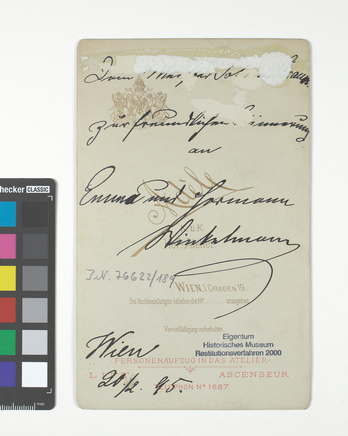 zur freundlichen
an
Adèle
Emma und Hermann
k.u.K.
Winkelmann
I.N. 76622/189
WIEN, I GRABEN 19.
Bei Nachbestellungen beliebe die Nº anzugeben.
Vervielfältigung vorbehalten.
Eigentum
Historisches Museum
Restitutionsverfahren 2000
Wien
PERSONENAUFZUG IN DAS ATELIER.
ASCENSEUR
20/2. 95.
Nº 1687.
checker CLASSIC
mm